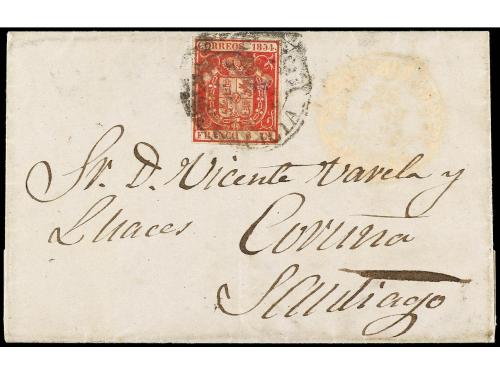 CORREOS 1854.
FRANCO 6
Sr. D. Vicente Varela y
Luaces Coruña
Santiago